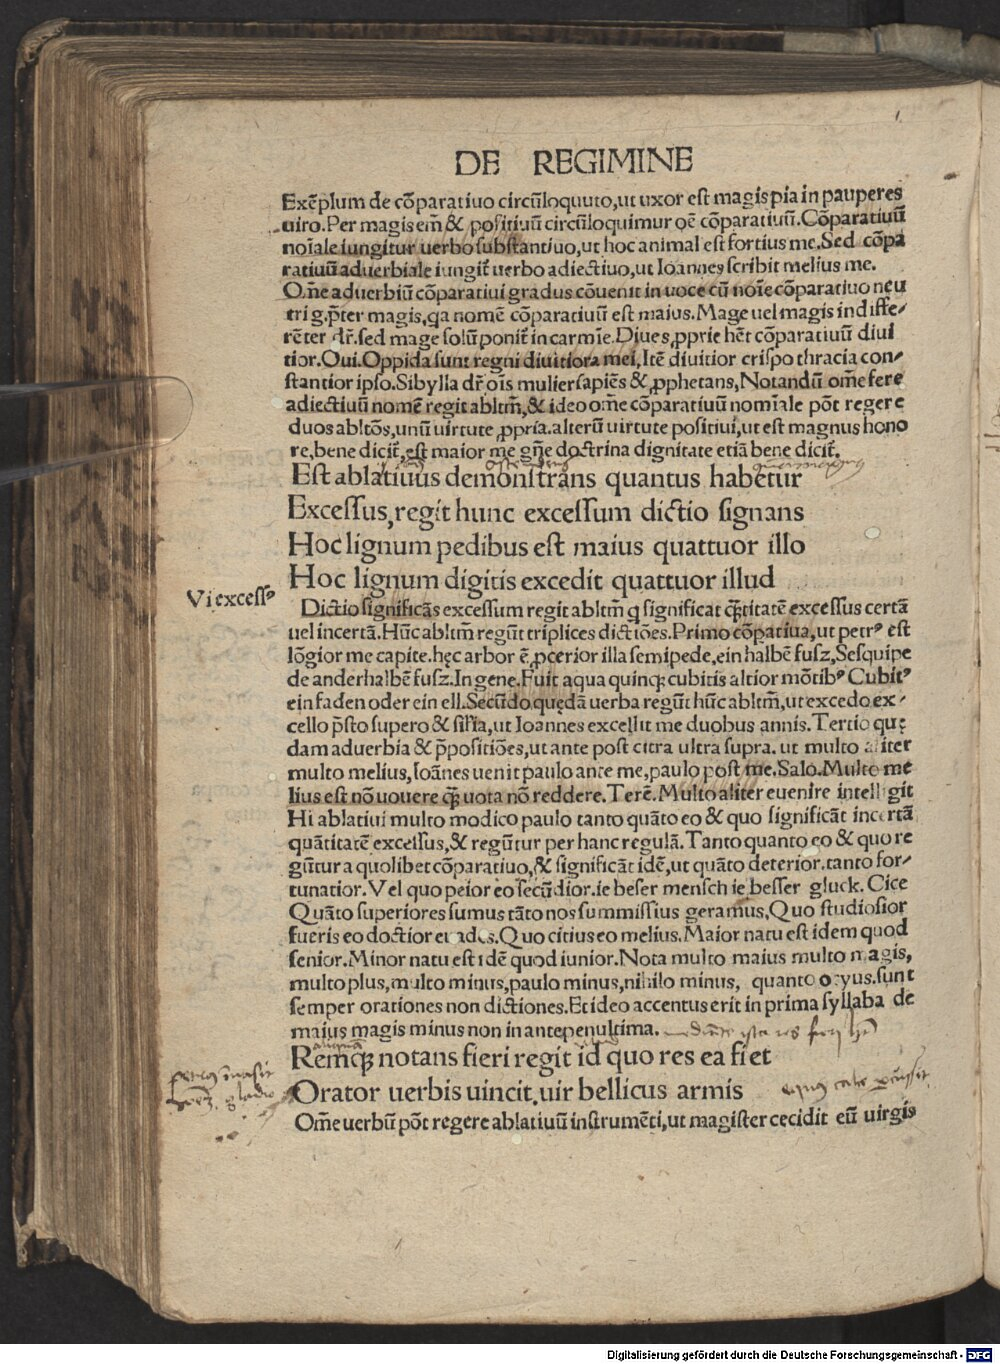 DE REGIMINE
Exēplum de cōparatiuo circūloquuto,ut uxor est magis pia in pauperes
uiro.Per magis em̄ & positiuū circūloquimur oē cōparatiuū.Cōparatiuū
noīale iungitur uerbo substantiuo,ut hoc animal est fortius me.Sed cōpa
ratiuū aduerbiale iungit̄ uerbo adiectiuo,ut Ioannes scribit melius me.
Om̄e aduerbiū cōparatiui gradus cōuenit in uoce cū noīe cōparatiuo neu
tri g.p̄ter magis,qa nomē cōparatiuū est maius.Mage uel magis indiffe⸗
rēter dr̄.sed mage solū ponit̄ in carmīe.Diues ꝓprie hēt cōparatiuū diui
tior.Oui.Oppida sunt regni diuitiora mei,Itē diuitior crispo thracia con⸗
stantior ipso.Sibylla dr̄ oīs mulier sapiēs & ꝓphetans,Notandū om̄e fere
adiectiuū nomē regit abltm̄,& ideo om̄e cōparatiuū nomīale pōt regere
duos abltōs,unū uirtute ꝓpria.alterū uirtute positiui,ut est magnus hono
re,bene dicit̄,est maior me gn̄e doctrina dignitate etiā bene dicit̄.
Est ablatiuus demonstrans quantus habetur
Excessus,regit hunc excessum dictio signans
Hoc lignum pedibus est maius quattuor illo
Hoc lignum digitis excedit quattuor illud
Vi excessꝰ
Dictio significās excessum regit abltm̄ q significat q̄titatē excessus certā
uel incertā.Hūc abltm̄ regūt triplices dictiōes.Primo cōpatiua,ut petrꝰ est
lōgior me capite.hęc arbor ē ꝓcerior illa semipede,ein halbē fusz,Sesquipe
de anderhalbē fusz.In gene.Fuit aqua quinqꝫ cubitis altior mōtibꝰ Cubitꝰ
ein faden oder ein ell.Secūdo quędā uerba regūt hūc abltm̄,ut excedo ex⸗
cello p̄sto supero & sil̄ia,ut Ioannes excellit me duobus annis.Tertio quę
dam aduerbia & p̄positiōes,ut ante post citra ultra supra.ut multo aliter
multo melius,Ioānes uenit paulo ante me,paulo post me.Salo.Multo me
lius est nō uouere q̄ꝫ uota nō reddere.Terē.Multo aliter euenire intelligit
Hi ablatiui multo modico paulo tanto quāto eo & quo significāt incertā
quātitatē excessus,& regūtur per hanc regulā.Tanto quanto eo & quo re
gūtur a quolibet cōparatiuo,& significāt idē,ut quāto deterior.tanto for⸗
tunatior.Vel quo peior eo secūdior.ie beser mensch ie besser gluck. Cice
Quāto superiores sumus tāto nos summissius geramus,Quo studiosior
fueris eo doctior euades.Quo citius eo melius.Maior natu est idem quod
senior.Minor natu est idē quod iunior.Nota multo maius multo magis,
multo plus,multo minus,paulo minus,nihilo minus, quanto ocyus.sunt
semper orationes non dictiones.Et ideo accentus erit in prima syllaba de
maius magis minus non in antepenultima.
Remq̄ꝫ notans fieri regit id quo res ea fiet
Orator uerbis uincit,uir bellicus armis
Om̄e uerbū pōt regere ablatiuū instrumēti,ut magister cecidit eū uirgis
Digitalisierung gefördert durch die Deutsche Forschungsgemeinschaft - DFG